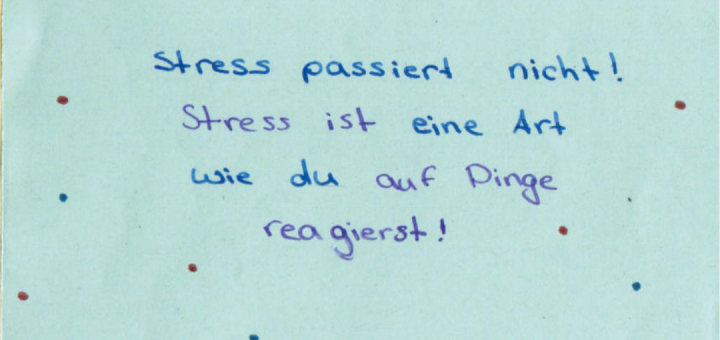 Stress passiert nicht!
Stress ist eine Art
wie du auf Dinge
reagierst!